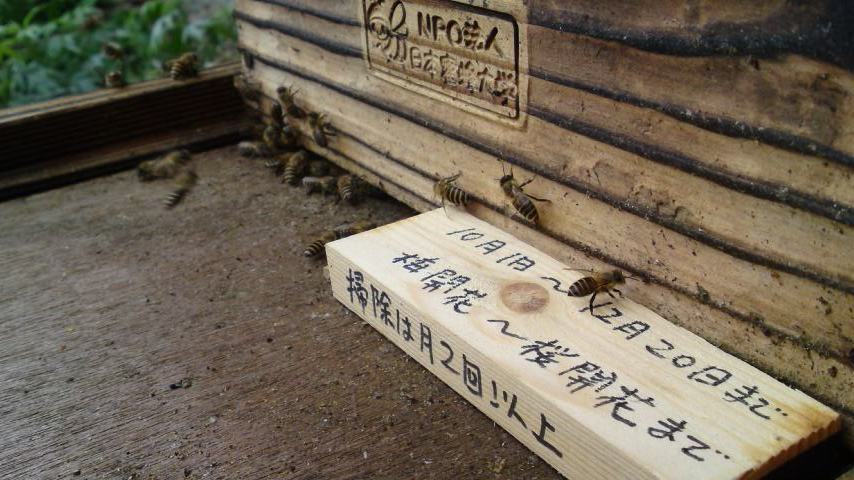 NPO芸人
日本蜜蜂大学
10月1日～12月20日まで
梅開花～桜開花まで
掃除は月2回以上